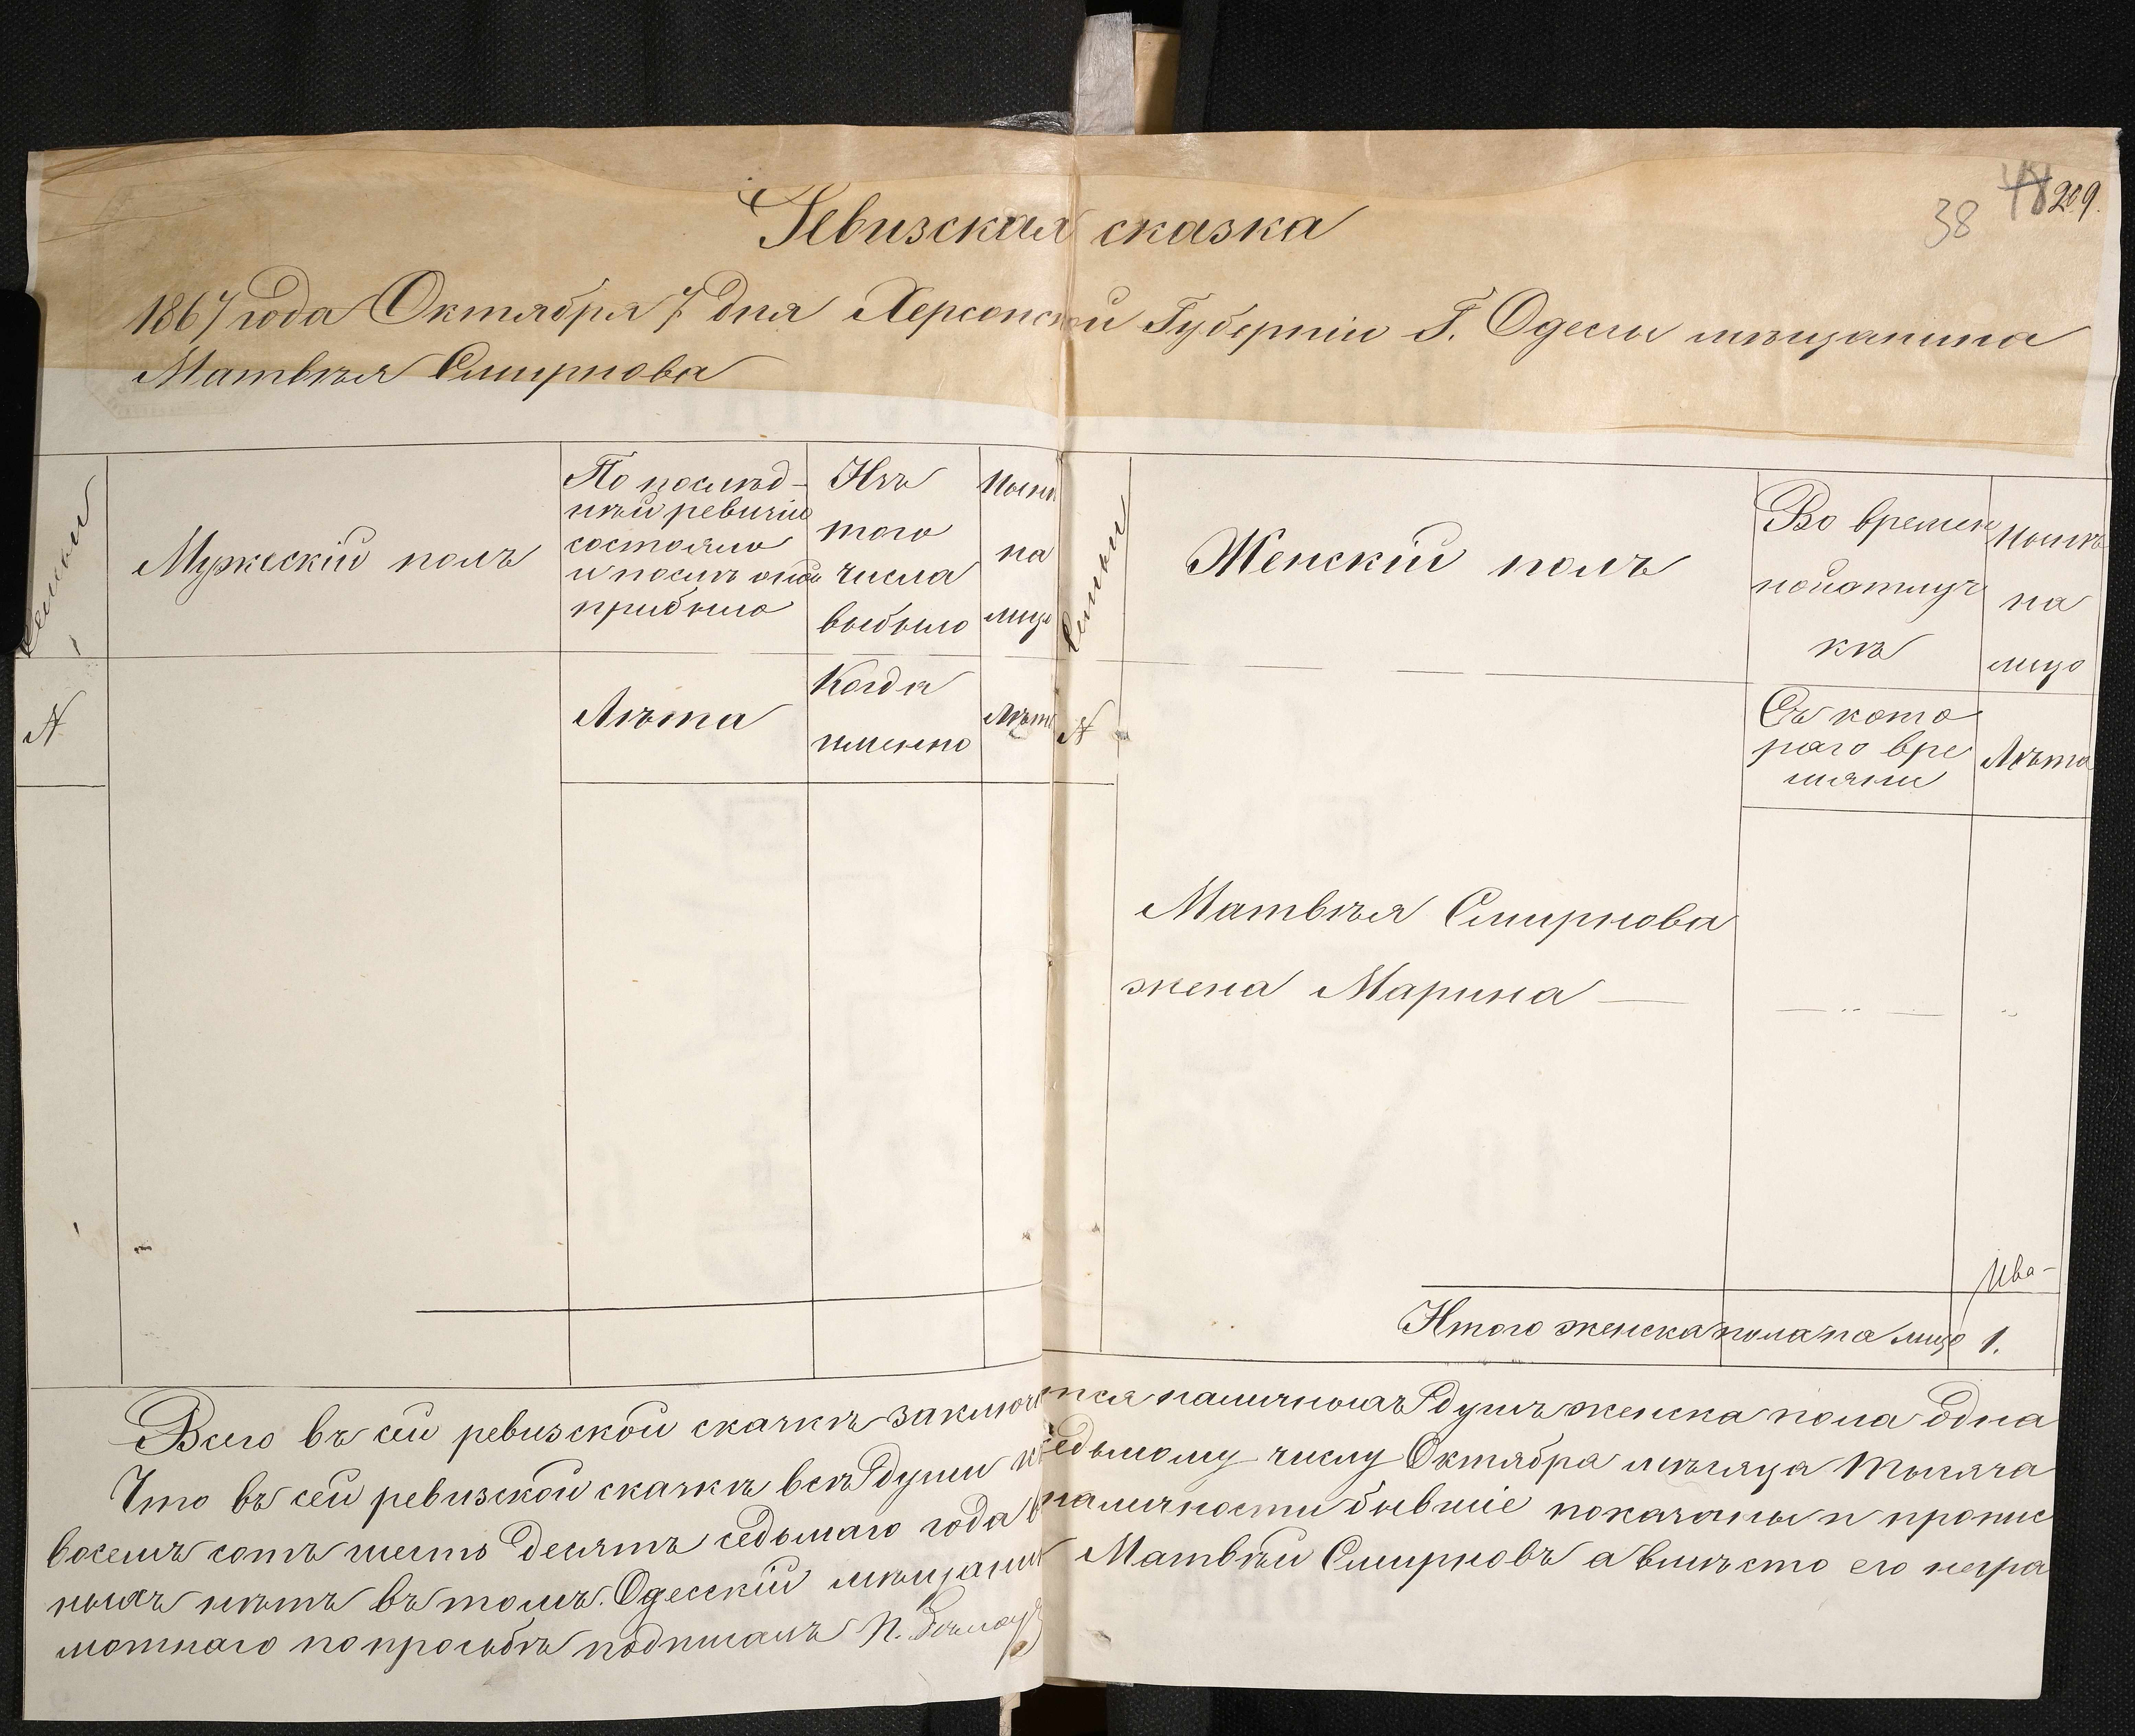 38 48 209.
Ревизская сказка
1867 года Октября 7 дня Херсонской Губерніи Г. Одесы мѣщанина
Матвѣя Смирнова
Семьи
Мужескій полъ
По послѣд-
нѣй ревизіи
состояло
и послѣ онои
прибыло
Изъ
того
числа
выбыло
Нынѣ
на
лицо
Семьи
Женскій полъ
Во времен
нойотлуч
кѣ
Нынѣ
на
лицо
№
Лѣта
Когда
именно
Лѣта
№
Съ кото
раго вре
мяни
Лѣта
Матвѣя Смирнова
жена Марина —
— „ —
„
Итого женска пола на лицо 1.
Всего въ сей ревизской сказкѣ заключается наличныхъ душъ женска пола одна
Что въ сей ревизской сказкѣ всѣ души къ седьмому числу Октября мѣсяца тысяча
восемъ сотъ шесть десятъ седьмаго года въ наличности бывшіе показаны и пропис
ныхъ нѣтъ въ томъ. Одесскій мѣщанинъ Матвѣй Смирновъ а вмѣсто его негра
мотнаго по прозьбѣ подписалъ П.